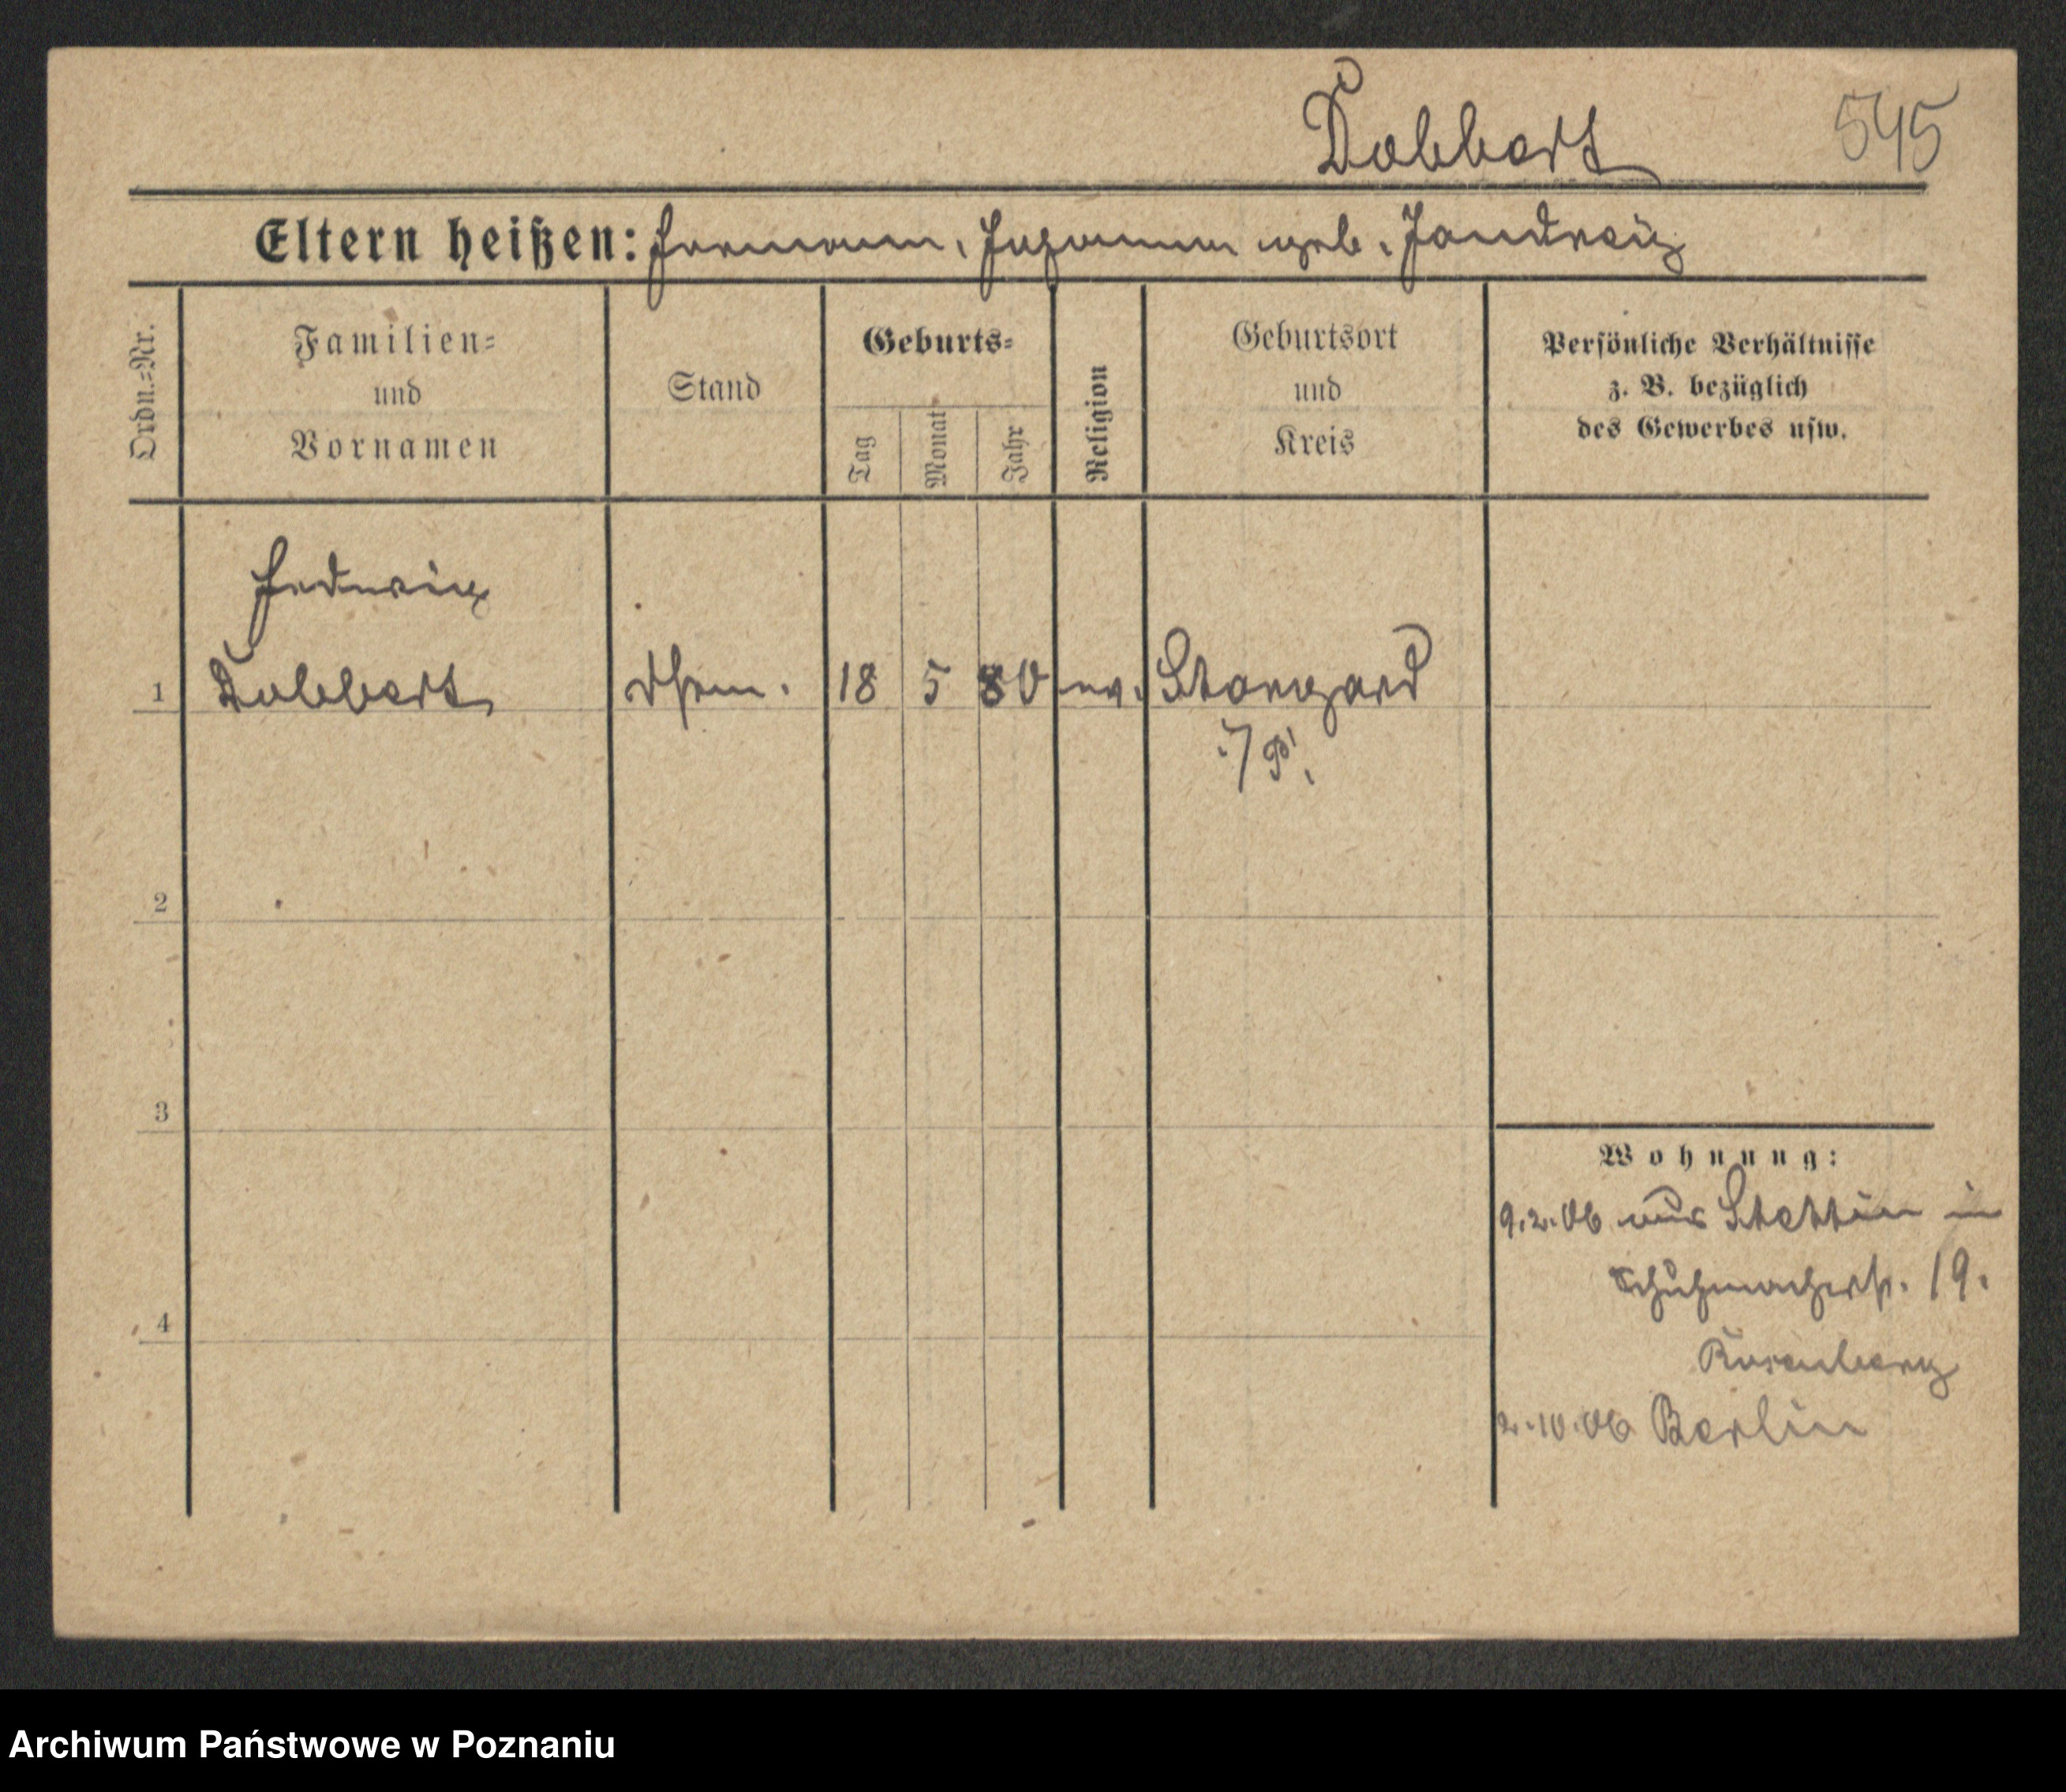 Dobbert
545
Eltern heißen: Hermann, Johanna geb. Jandreÿ
Ordn.=Nr.
Familien=
und
Vornamen
Stand
Geburts=
Tag
Monat
Jahr
Religion
Geburtsort
und
Kreis
Persönliche Verhältnisse
z. B. bezüglich
des Gewerbes usw.
Hedwig
1 Dobbert 18 5 80 ev. Stargard
i/P.
2
3
4
Wohnung:
9.2.06 aus Stettin in
Schuhmacherstr. 19.
Rosenberg
2.10.06 Berlin
Archiwum Państwowe w Poznaniu